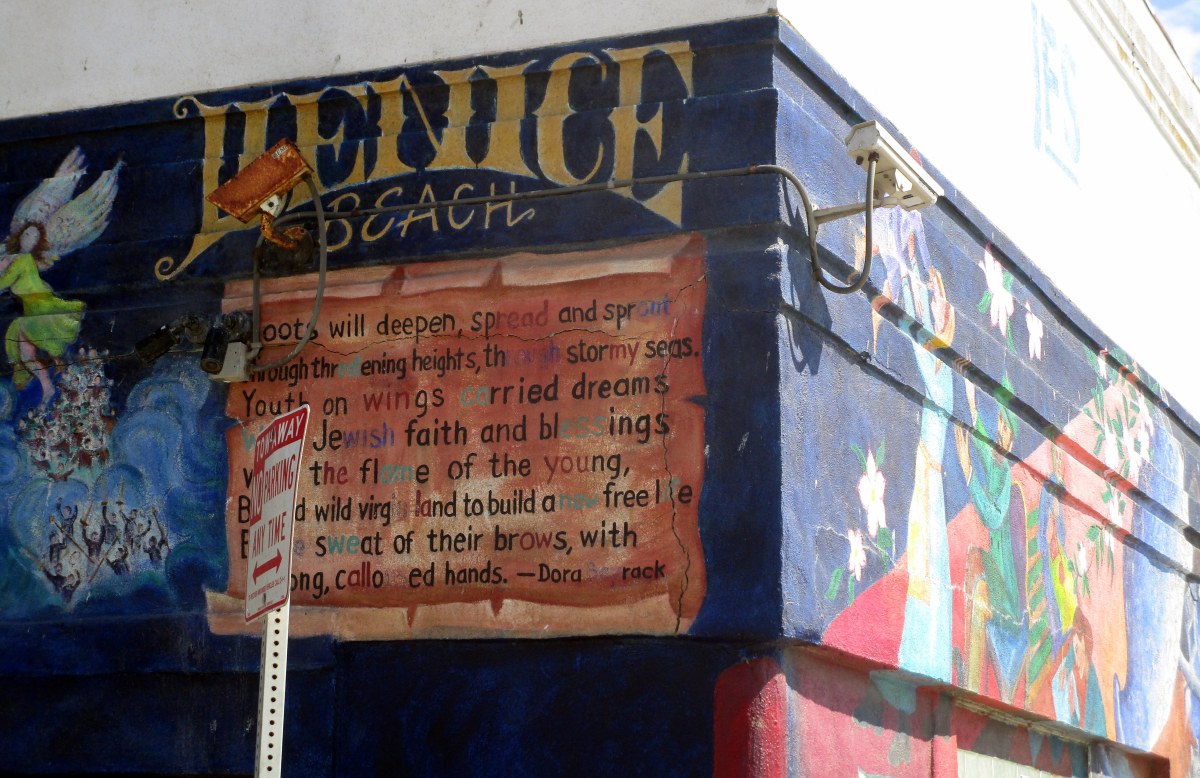 VENICE
BEACH
Roots will deepen, spread and sprout
Through threatening heights, stormy seas.
Youth on wings carried dreams
Jewish faith and blessings
the flame of the young,
wild virgin land to build a new free life
sweat of their brows, with
Strong, calloused hands. —Dora
TOW-AWAY
NO PARKING
ANY TIME